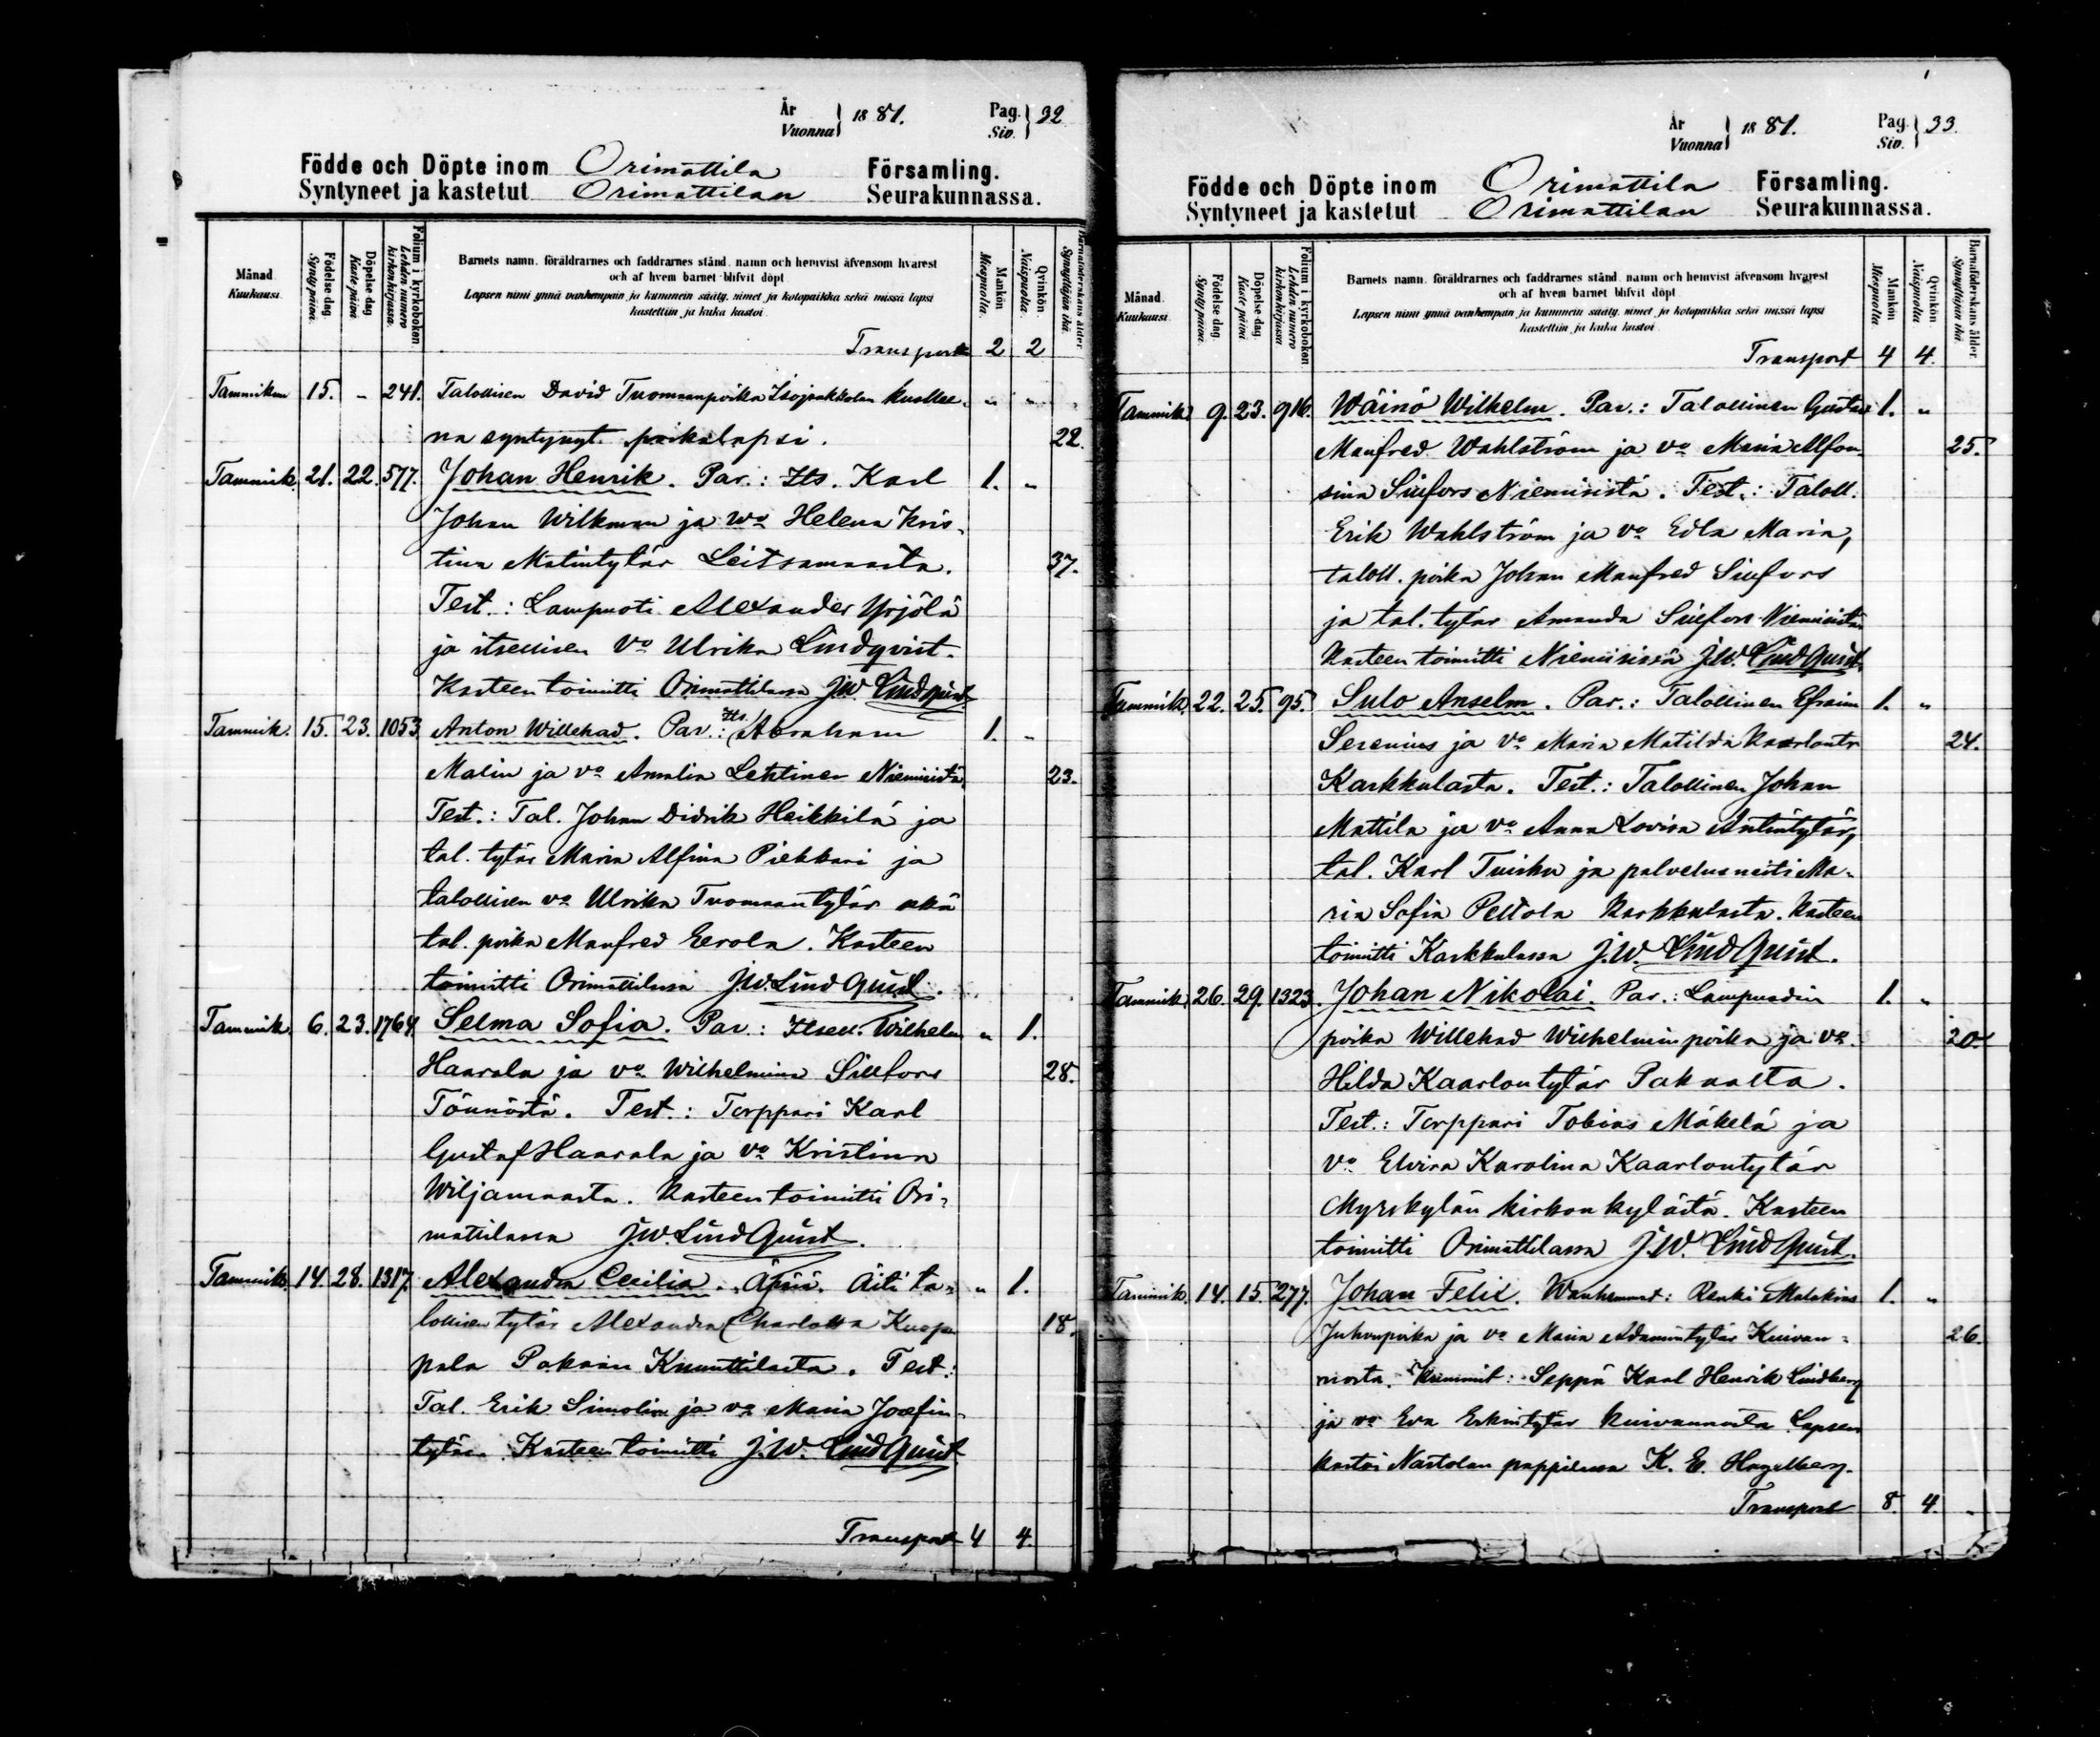 År
Vuonna } 1881.
Pag.
Siv. } 32
Födde och Döpte inom Orimattila Församling.
Syntyneet ja kastetut Orimattilan Seurakunnassa.
Månad.
Kuukausi.
Födelse dag.
Synty päivä.
Döpelse dag
Kaste päivä
Folium i kyrkoboken
Lehden numero
kirkonkirjassa.
Barnets namn, föräldrarnes och faddrarnes stånd, namn och hemvist äfvensom hvarest
och af hvem barnet blifvit döpt
Lapsen nimi ynnä vanhempain ja kummein sääty, nimet ja kotopaikka sekä missä lapsi
kastettiin ja kuka kastoi.
Mankön
Miespuolta.
Qvinkön.
Naispuolta.
Barnaföderskans ålder
Synnyttäjän ikä.
Transport 2 2
Tammikuu 15. - 241. Talollisen David Tuomaanpoika Isojaakkolan kuollee- " "
na syntynyt poikalapsi. 22.
Tammik. 21. 22. 577. Johan Henrik. Par.: Its. Karl 1. "
Johan Wilkman ja wo Helena Kris-
tina Matintytär Leitsamaasta. 37.
Test.: Lampuoti Alexander Yrjölä
ja itsellisen vo Ulrika Lindqvist.
Kasteen toimitti Orimattilassa J.W. Lindquist.
Tammik. 15. 23. 1053. Anton Willehad. Par.: Its. Abraham 1. "
Malin ja vo Amalia Lehtinen Niemiistä. 23.
Test.: Tal. Johan Didrik Heikkilä ja
tal. tytär Maria Alfina Piekkari ja
talollisen vo Ulrika Tuomaantytär sekä
tal. poika Manfred Eerola. Kasteen
toimitti Orimattilassa J.W. Lindquist.
Tammik. 6. 23. 1764. Selma Sofia. Par.: Itsell. Wilhelm " 1.
Haarala ja vo Wilhelmina Sillfors 28.
Tönnöstä. Test.: Torppari Karl
Gustaf Haarala ja vo Kristina
Wiljamaasta. Kasteen toimitti Ori-
mattilassa J.W. Lindquist.
Tammik. 14. 28. 1317. Alexandra Cecilia. Äpärä. Äiti ta- " 1.
lollisen tytär Alexandra Charlotta 18.
pala Pakaan Knuuttilasta. Test.:
Tal. Erik Simolin ja vo Maria Josefin-
tytär. Kasteen toimitti J.W. Lindquist
Transport 4 4.
År
Vuonna } 1881.
Pag.
Siv. } 33.
Födde och Döpte inom Orimattila Församling.
Syntyneet ja kastetut Orimattilan Seurakunnassa.
Månad.
Kuukausi.
Födelse dag.
Synty päivä.
Döpelse dag.
Kaste päivä
Folium i kyrkoboken
Lehden numero
kirkonkirjassa
Barnets namn, föräldrarnes och faddrarnes stånd, namn och hemvist äfvensom hvarest
och af hvem barnet blifvit döpt
Lapsen nimi ynnä vanhempain ja kummein sääty, nimet ja kotopaikka sekä missä lapsi
kastettiin ja kuka kastoi.
Mankön
Miespuolta
Qvinkön.
Naispuolta.
Barnaföderskans ålder
Synnyttäjän ikä.
Transport 4 4.
Tammik. 9. 23. 916. Wäinö Wilhelm. Par.: Talollinen Gustav 1. "
Manfred Wahlström ja vo Maria Alfon- 25.
sina Siilfors Niemiistä. Test.: Taloll.
Erik Wahlström ja vo Edla Maria,
taloll. poika Johan Manfred Siilfors
ja tal. tytär Amanda Siilfors Niemiistä.
Kasteen toimitti Niemiisissä J.W. Lindquist.
Tammik. 22. 25. 95. Sulo Anselm. Par.: Talollinen Efraim 1. "
Serenius ja vo Maria Matilda Kaarlontr 24.
Karkkulasta. Test.: Talollinen Johan
Mattila ja vo Anna Lovisa Antintytär,
tal. Karl Tuisku ja palvelusneiti Ma-
ria Sofia Peltola Karkkulasta. Kasteen
toimitti Karkkulassa J.W. Lindquist.
Tammik. 26. 29. 1323. Johan Nikolai. Par.: Lampuodin 1. "
poika Willehad Wilhelmin poika ja vo 20.
Hilda Kaarlontytär Pakaasta.
Test.: Torppari Tobias Mäkelä ja
vo Elvira Karolina Kaarlontytär
Myrskylän kirkonkylästä. Kasteen
toimitti Orimattilassa J.W. Lindquist.
Tammik. 14. 15. 277. Johan Felix. Wanhemmat: Renki Malakias 1. "
Juhonpoika ja vo Maria Adamintytär Kuivan- 26.
nosta. Kummit: Seppä Karl Henrik Lindberg
ja vo Eva Erkintytär Kuivannosta Lapsen
kastoi Nastolan pappilassa K. E. Hagelberg.
Transport 8. 4.